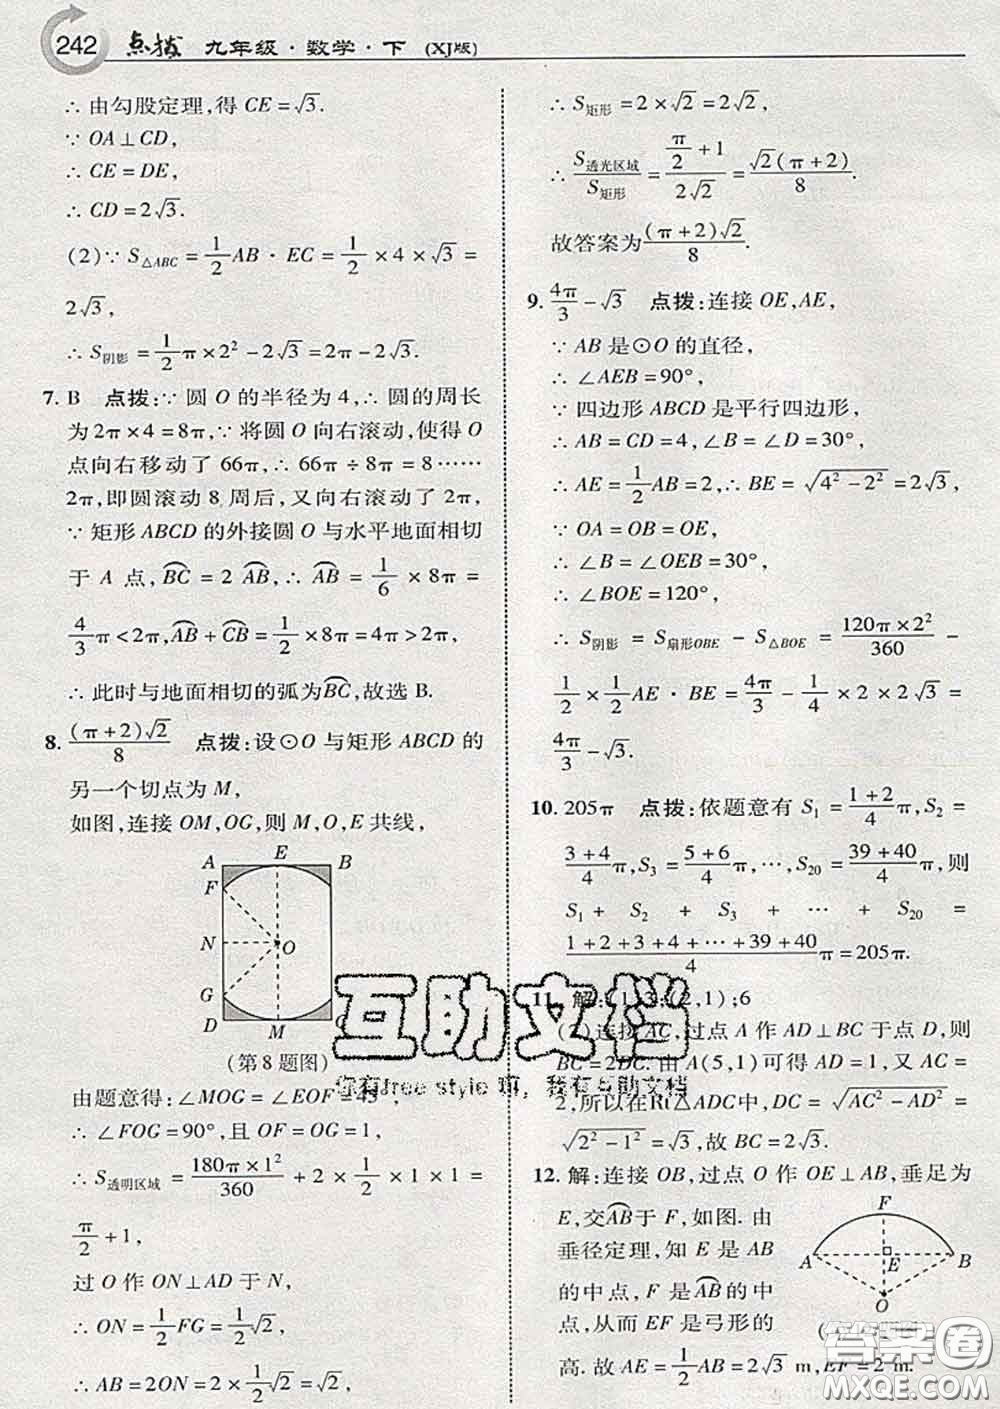 242 点拨 九年级·数学·下 (XJ版)
∴ 由勾股定理,得 CE=√3.
∵ OA⊥CD,
∴ CE=DE,
∴ CD=2√3.
(2)∵ S△ABC = 1/2 AB·EC = 1/2 ×4×√3 =
2√3,
∴ S阴影 = 1/2 π×2² − 2√3 = 2π − 2√3.
7. B 点拨:∵ 圆 O 的半径为 4,∴ 圆的周长
为 2π×4=8π,∵ 将圆 O 向右滚动,使得 O
点向右移动了 66π,∴ 66π÷8π=8……
2π,即圆滚动 8 周后,又向右滚动了 2π,
∵ 矩形 ABCD 的外接圆 O 与水平地面相切
于 A 点,⌒BC = 2 ⌒AB,∴ ⌒AB = 1/6 ×8π =
4/3 π<2π,⌒AB+⌒CB = 1/2 ×8π=4π>2π,
∴ 此时与地面相切的弧为⌒BC,故选 B.
8. (π+2)√2/8 点拨:设⊙O 与矩形 ABCD 的
另一个切点为 M,
如图,连接 OM,OG,则 M,O,E 共线,
A E B
F
N O
G
D M C
(第 8 题图)
由题意得:∠MOG=∠EOF=45°,
∴ ∠FOG=90°,且 OF=OG=1,
∴ S透明区域 = 180π×1²/360 + 2× 1/2 ×1×1 =
π/2 +1,
过 O 作 ON⊥AD 于 N,
∴ ON = 1/2 FG = 1/2 √2,
∴ AB=2ON=2× 1/2 ×√2=√2,
∴ S矩形 = 2×√2 = 2√2,
∴ S透光区域/S矩形 = (π/2 +1)/2√2 = √2(π+2)/8.
故答案为 (π+2)√2/8.
9. 4π/3 − √3 点拨:连接 OE,AE,
∵ AB 是⊙O 的直径,
∴ ∠AEB=90°,
∵ 四边形 ABCD 是平行四边形,
∴ AB=CD=4,∠B=∠D=30°,
∴ AE= 1/2 AB=2,∴ BE=√(4²−2²)=2√3,
∵ OA=OB=OE,
∴ ∠B=∠OEB=30°,
∴ ∠BOE=120°,
∴ S阴影 = S扇形OBE − S△BOE = 120π×2²/360 −
1/2 × 1/2 AE·BE = 4π/3 − 1/4 ×2×2√3 =
4π/3 − √3.
10. 205π 点拨:依题意有 S₁ = (1+2)/4 π,S₂ =
(3+4)/4 π,S₃ = (5+6)/4 π,…,S₂₀ = (39+40)/4 π,则
S₁ + S₂ + S₃ + … + S₂₀ =
(1+2+3+4+…+39+40)/4 π=205π.
11. 解:(2,1);6
(2)连接 AC,过点 A 作 AD⊥BC 于点 D,则
BC=2DC. 由 A(5,1)可得 AD=1,又 AC=
2,所以在Rt△ADC中,DC=√(AC²−AD²)
=√(2²−1²)=√3,故 BC=2√3.
12. 解:连接 OB,过点 O 作 OE⊥AB,垂足为
E,交⌒AB于 F,如图. 由
垂径定理,知 E 是 AB
的中点,F 是⌒AB的中
点,从而 EF 是弓形的
高. 故 AE= 1/2 AB=2√3 m,EF=2 m.
F
A E B
O
互助文档
你有free style 吗,我有互助文档
答案圈
MXQE.COM